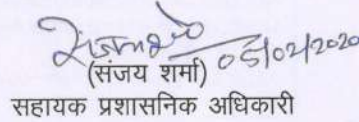 05/02/2020
(संजय शर्मा)
सहायक प्रशासनिक अधिकारी